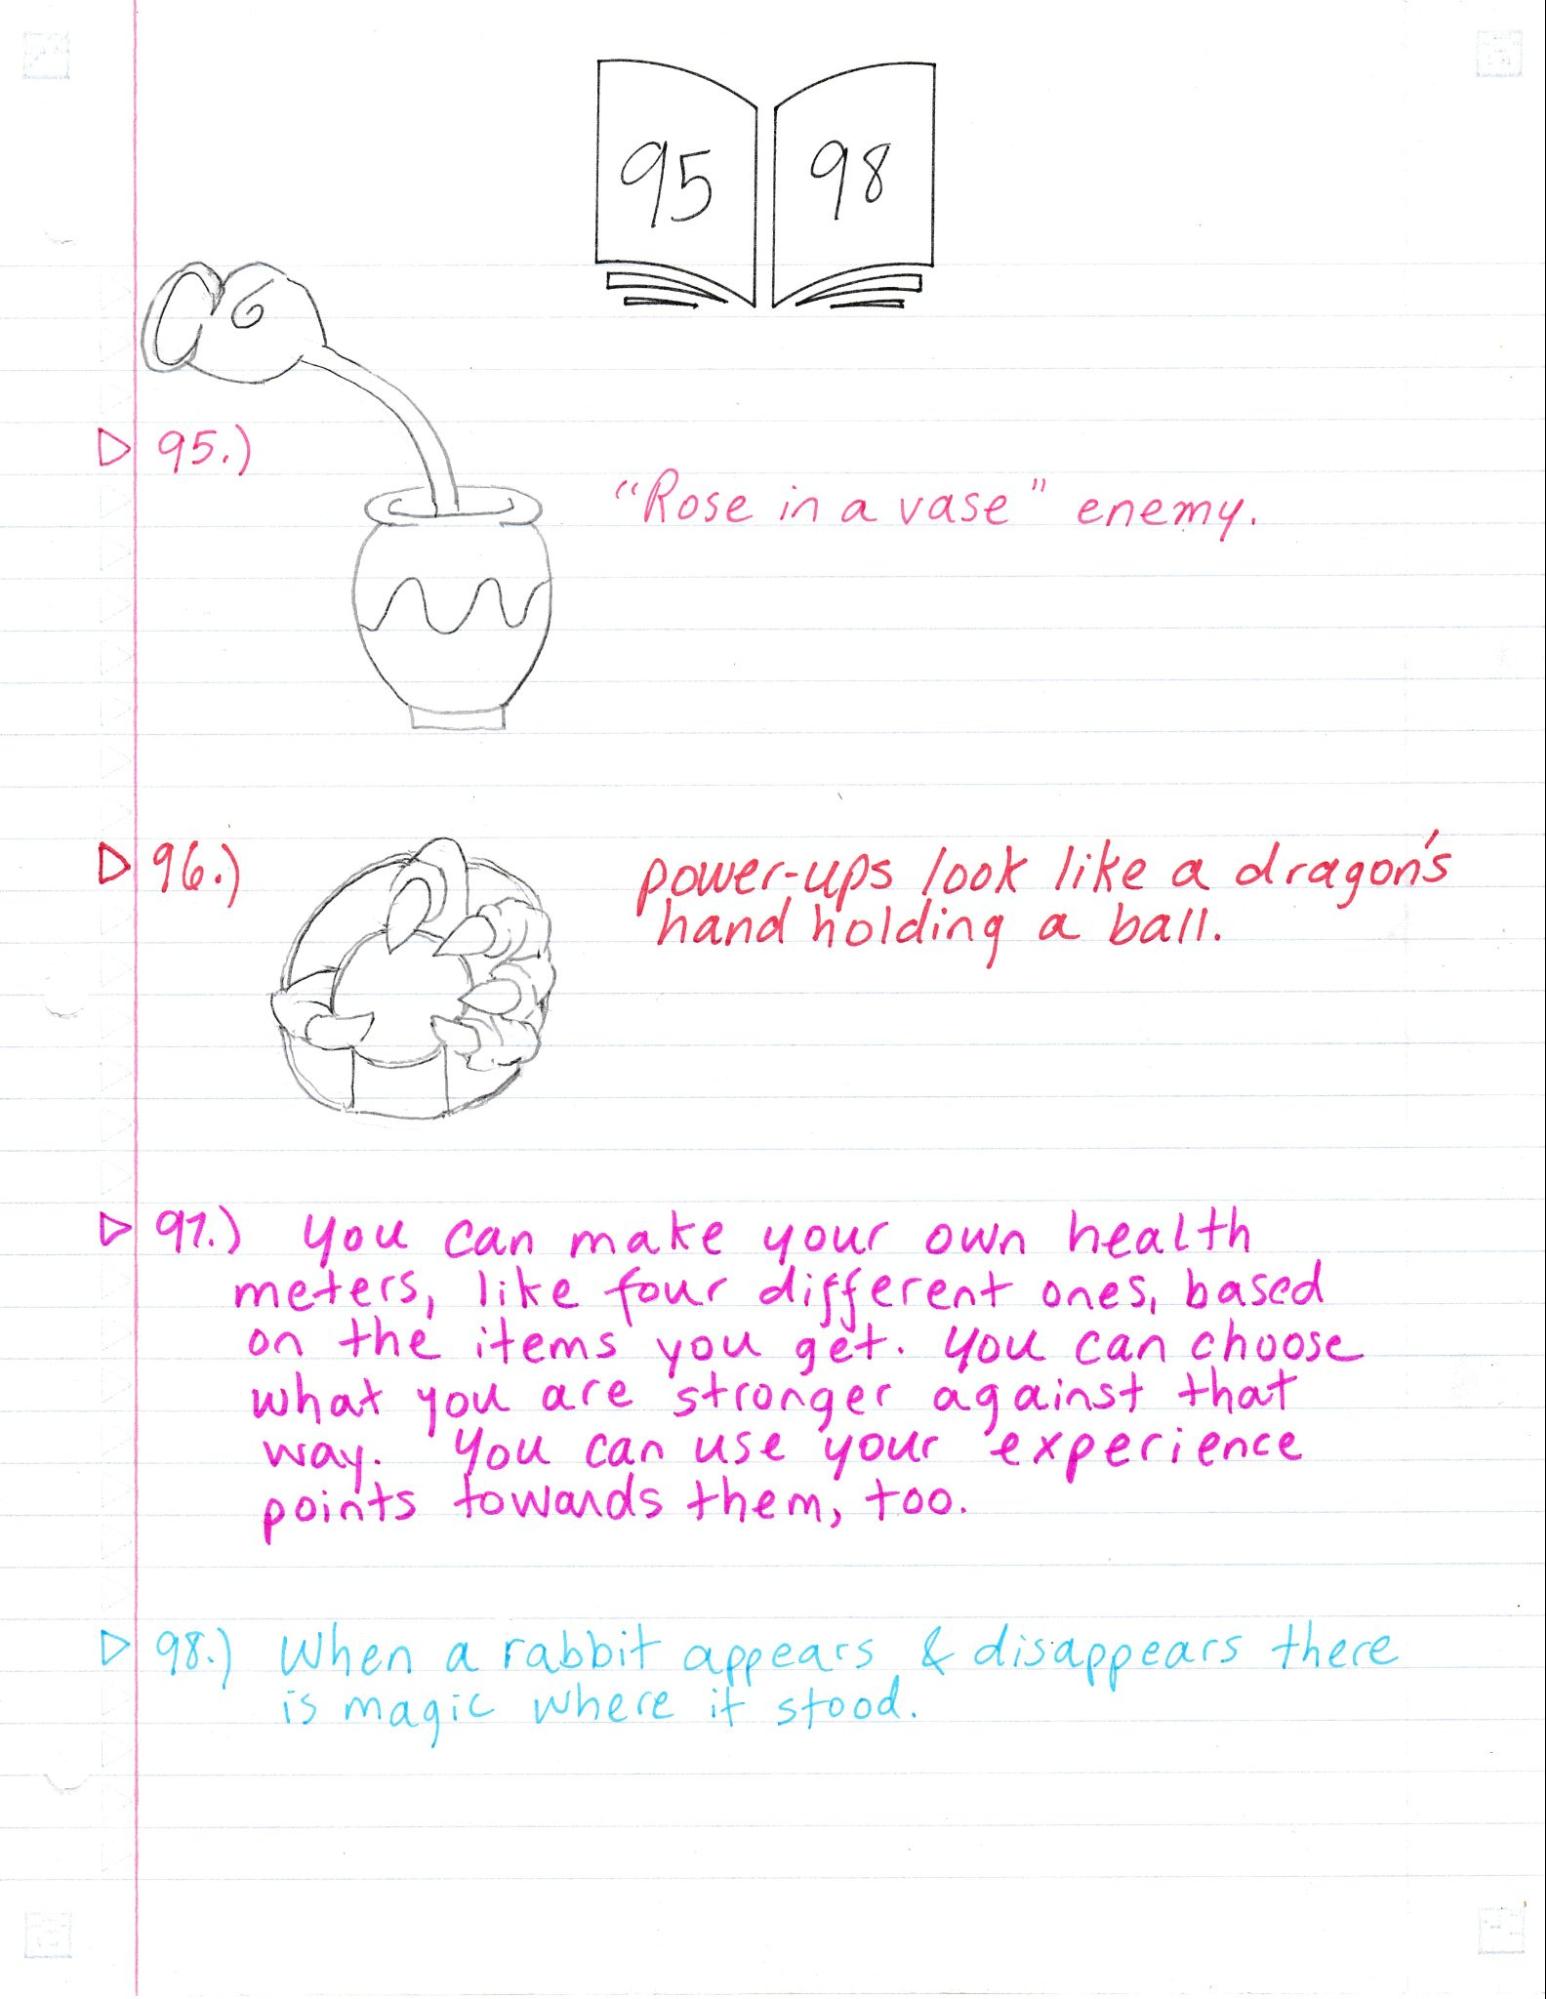 95 98
95.)
"Rose in a vase" enemy.
96.) power-ups look like a dragon's
hand holding a ball.
97.) You can make your own health
meters, like four different ones, based
on the items you get. You can choose
what you are stronger against that
way. You can use your experience
points towards them, too.
98.) When a rabbit appears & disappears there
is magic where it stood.